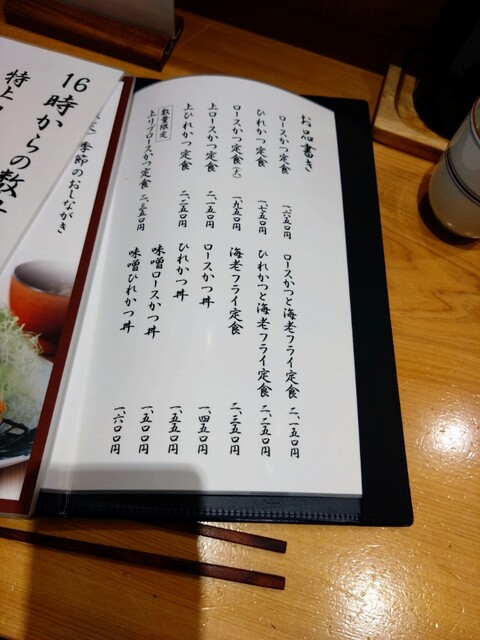 お品書き
ロースかつ定食 一、六五〇円
ひれかつ定食 一、七五〇円
ロースかつ定食(大) 一、九五〇円
上ロースかつ定食 二、一五〇円
上ひれかつ定食 二、二五〇円
数量限定
上リブロースかつ定食 二、三五〇円
ロースかつと海老フライ定食 二、一五〇円
ひれかつと海老フライ定食 二、二五〇円
海老フライ定食 二、三五〇円
ロースかつ丼 一、四五〇円
ひれかつ丼 一、五五〇円
味噌ロースかつ丼 一、五〇〇円
味噌ひれかつ丼 一、六〇〇円
季節のおしながき
16時からの数
特上